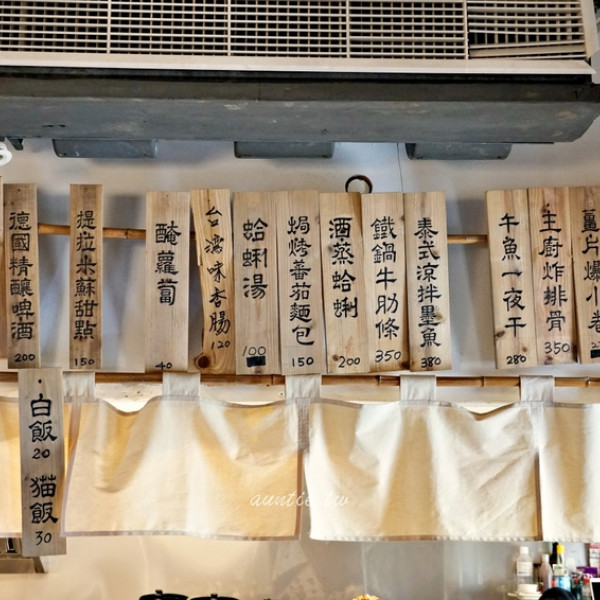 德國精釀啤酒
200
提拉米蘇甜點
150
醃蘿蔔
40
台灣味香腸
120
蛤蜊湯
100
焗烤蕃茄麵包
150
酒蒸蛤蜊
200
鐵鍋牛肋條
350
泰式涼拌墨魚
380
午魚一夜干
280
主廚炸排骨
350
薑片爆小卷
白飯
20
猫飯
30
auntie.tw